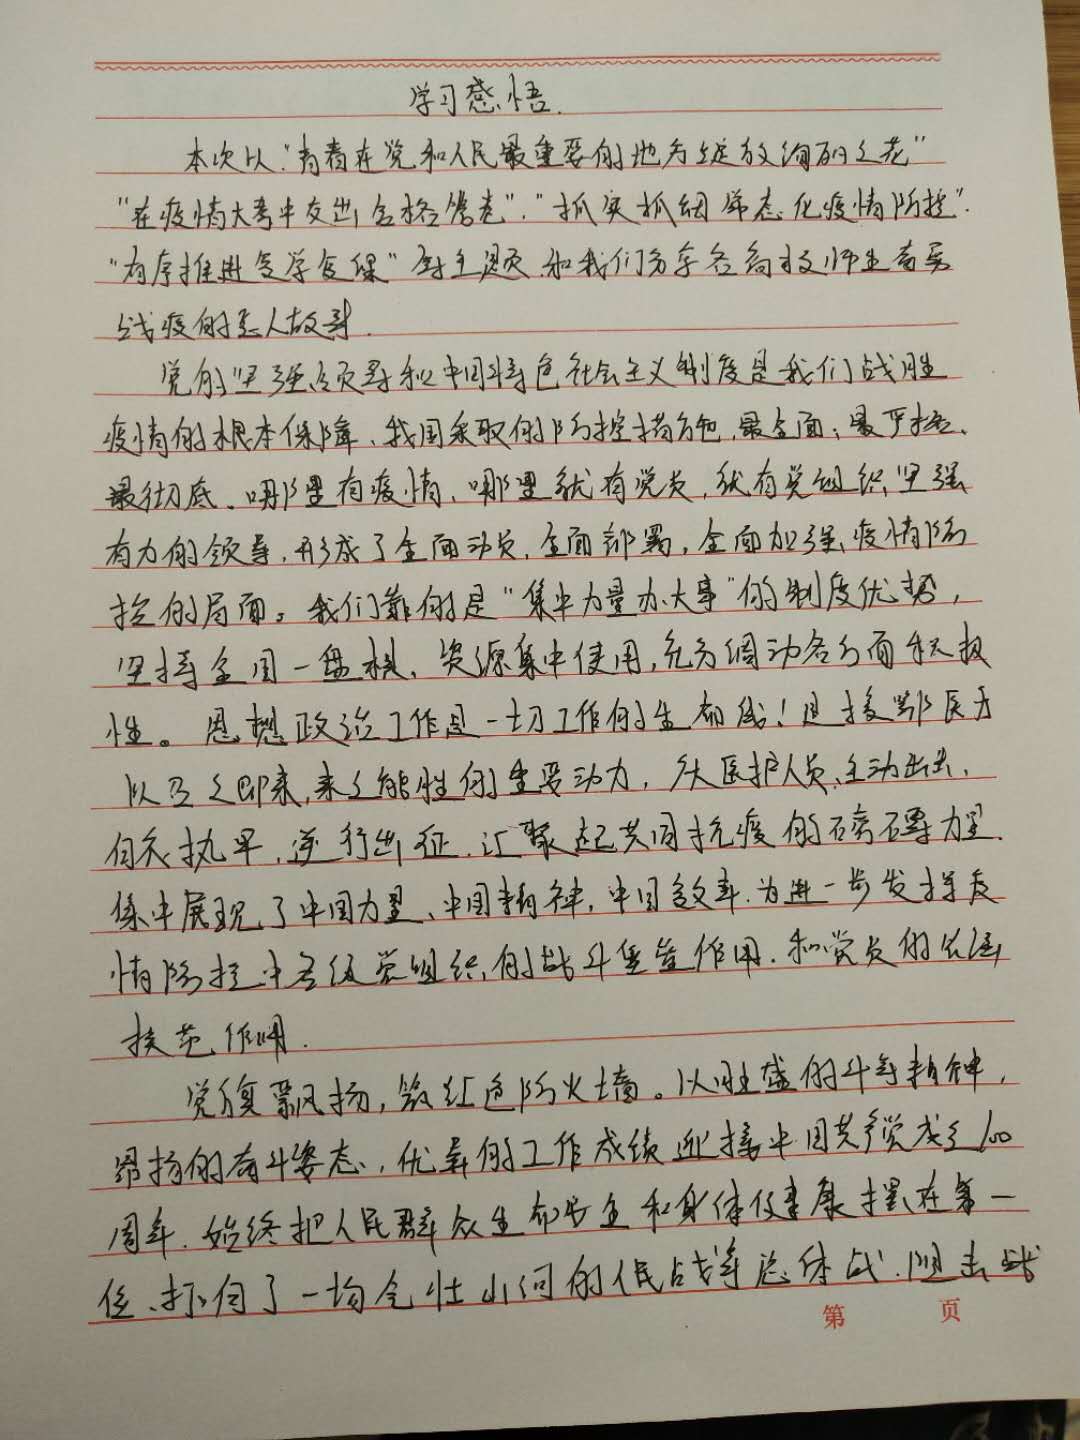 学习感悟.
本次以"青春在党和人民最重要的地方绽放绚丽之花"
"在疫情大考中交出合格答卷"."抓实抓细常态化疫情防控".
"有序推进复学复课"为主题.和我们分享各高校师生奋勇
战疫的感人故事.
党的坚强领导和中国特色社会主义制度是我们战胜
疫情的根本保障、我国采取的防控措施最全面;最严格、
最彻底。哪里有疫情、哪里就有党员,就有党组织坚强
有力的领导,形成了全面动员,全面部署,全面加强疫情防
控的局面。我们靠的是"集中力量办大事"的制度优势,
坚持全国一盘棋、资源集中使用,充分调动各方面积极
性。思想政治工作是一切工作的生命线!是援鄂医疗
队召之即来,来之能胜的重要动力,广大医护人员、主动出击、
白衣执甲,逆行出征.汇聚起共同抗疫的磅礴力量.
集中展现了中国力量、中国精神,中国效率.为进一步发挥疫
情防控中各级党组织的战斗堡垒作用.和党员的先锋
模范作用.
党旗飘扬,筑红色防火墙。以旺盛的斗争精神,
昂扬的奋斗姿态,优异的工作成绩迎接中国共产党成立100
周年.始终把人民群众生命安全和身体健康摆在第一
位、打响了一场气壮山河的人民战争总体战.阻击战
第 页